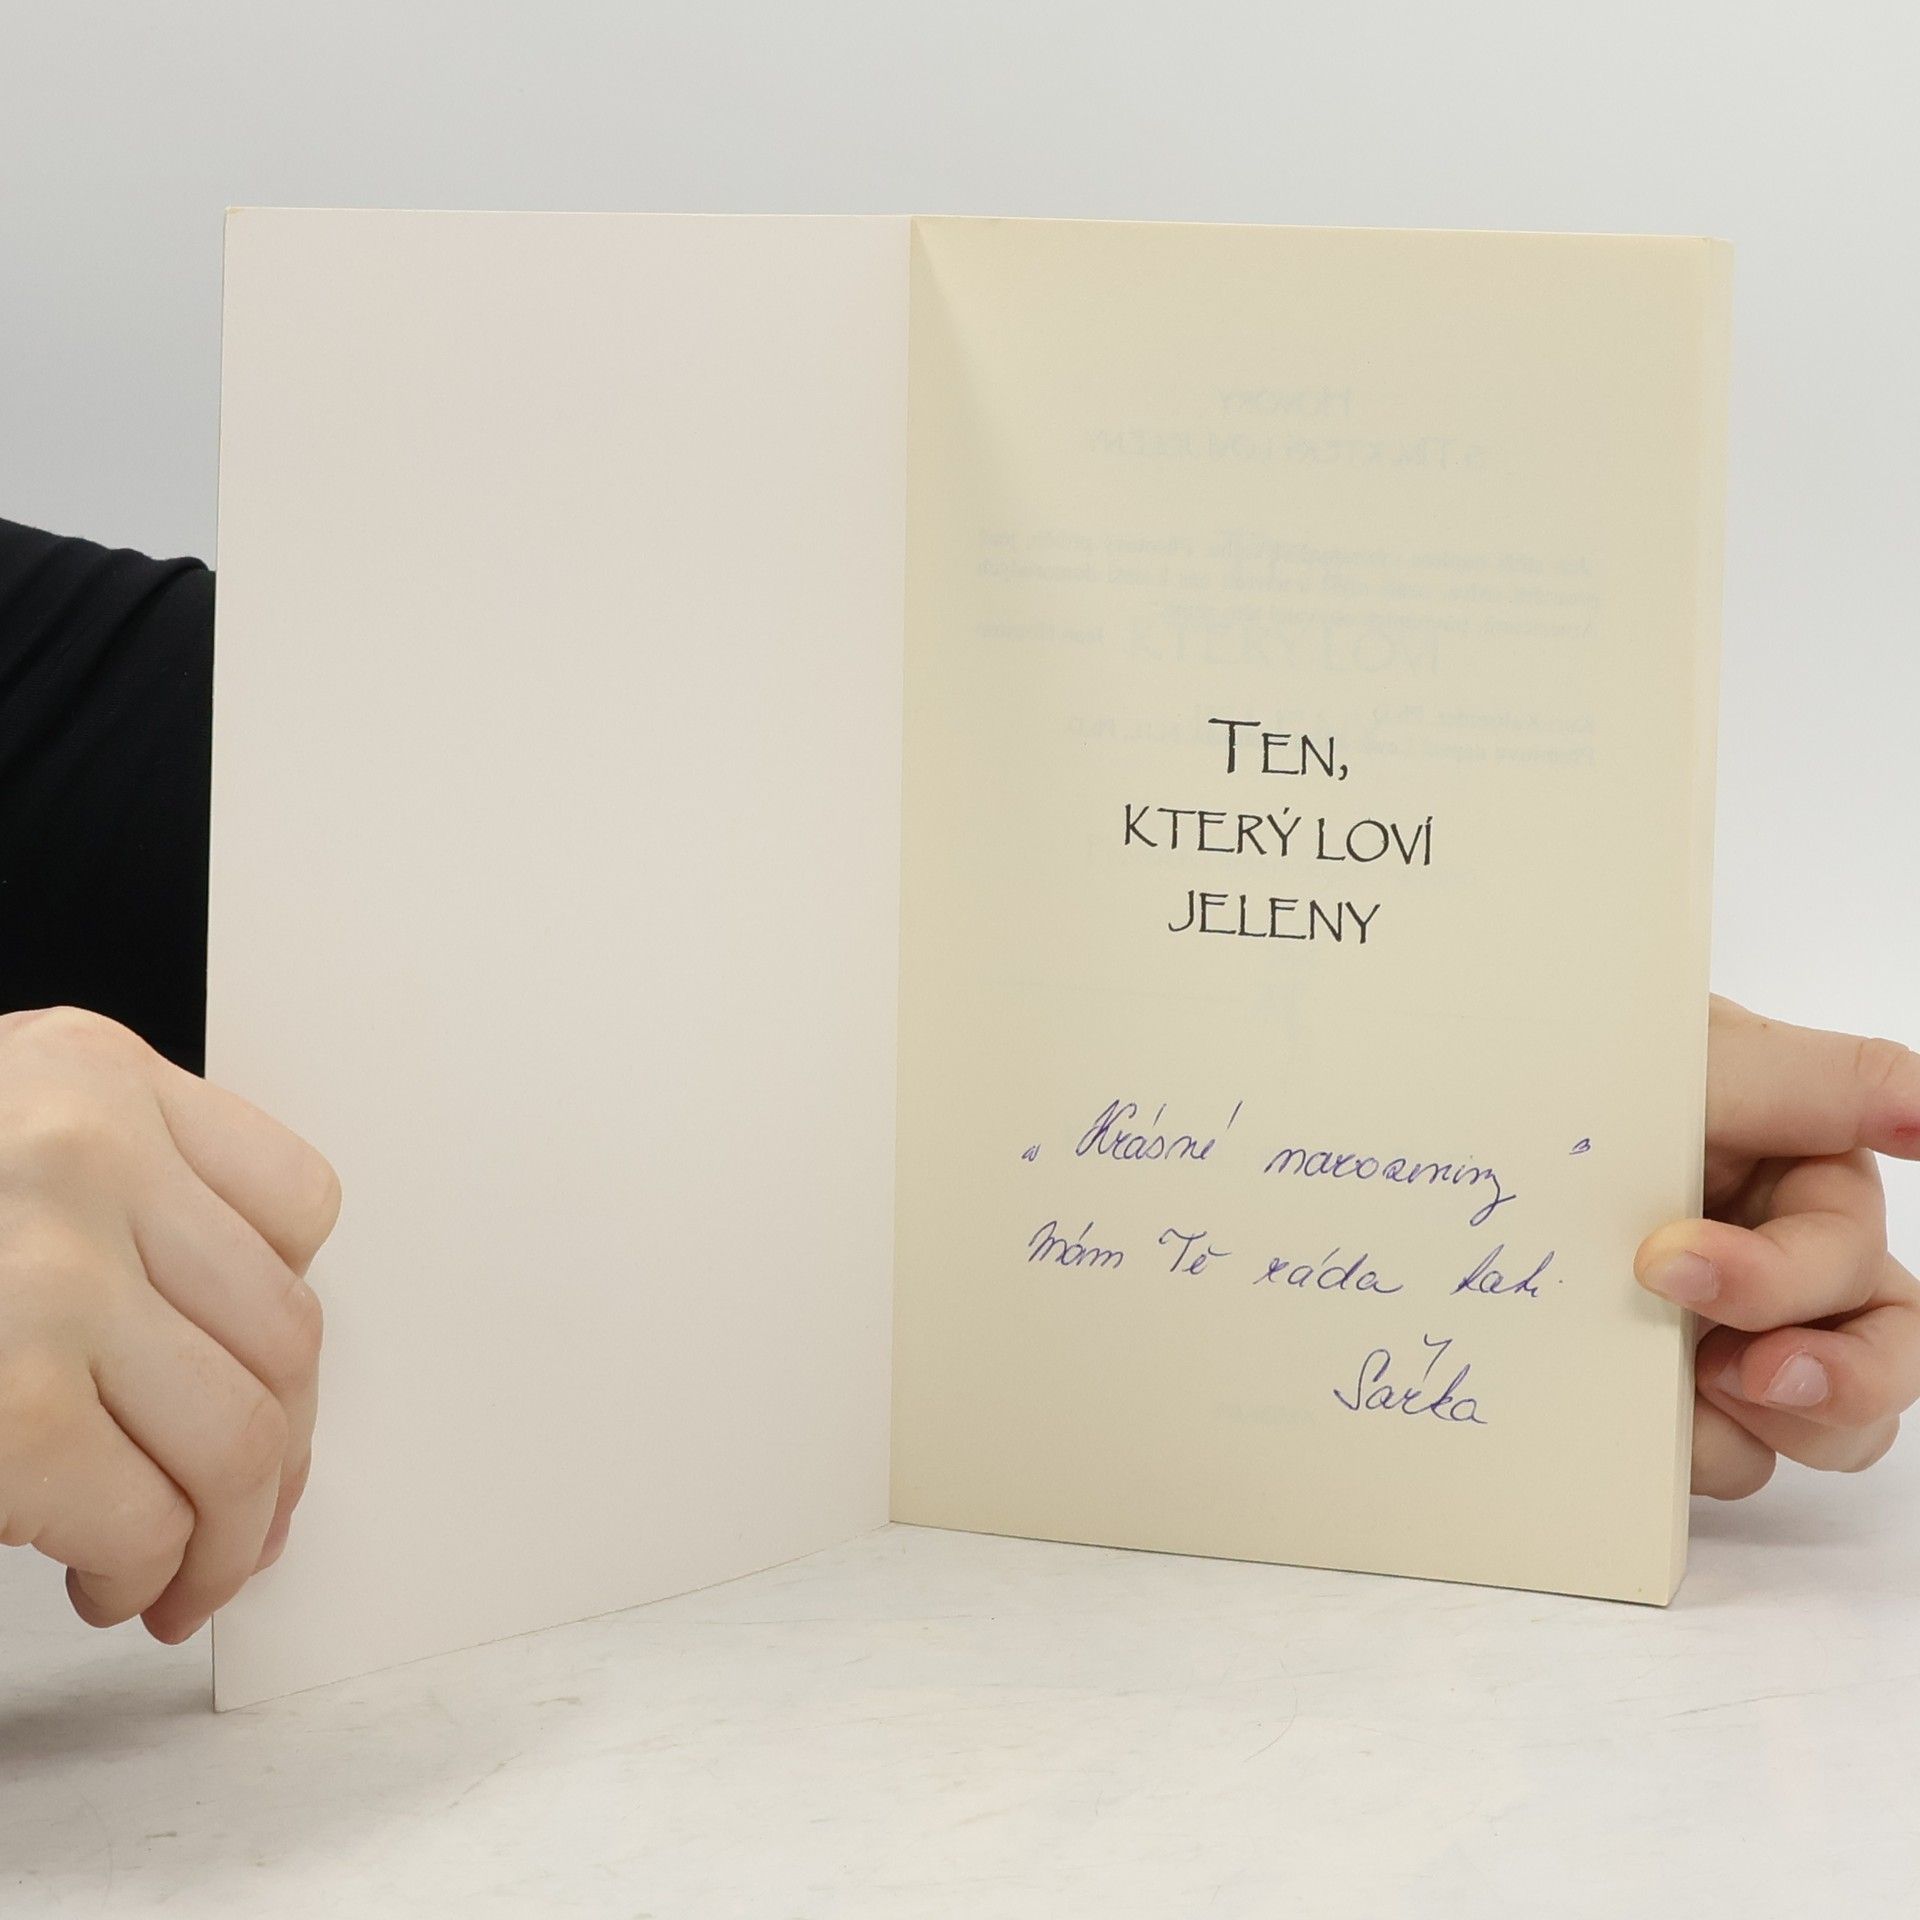 TEN,
KTERÝ LOVÍ
JELENY
„ Krásné narozeniny "
Mám Tě ráda tati.
Šárka